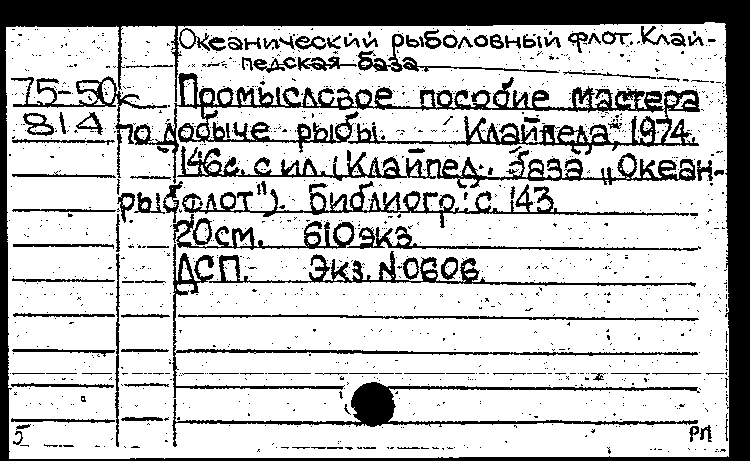 Океанический рыболовный флот. Клай-
педская база.
75-50к Промысловое пособие мастера
814 по добыче рыбы. Клайпеда, 1974.
146с. с ил. (Клайпед. база „Океан-
рыбфлот"). Библиогр.: с. 143.
20см. 610экз.
ДСП. Экз. №0606.
5 РП